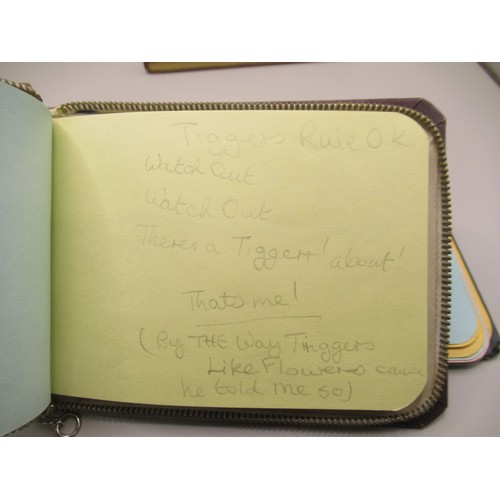 Tiggers Rule Ok
Watch Out
Watch Out
Theres a Tiggerr! about!
Thats me!
(By THE Way Tinggers
Like Flowers cause
he told me so)